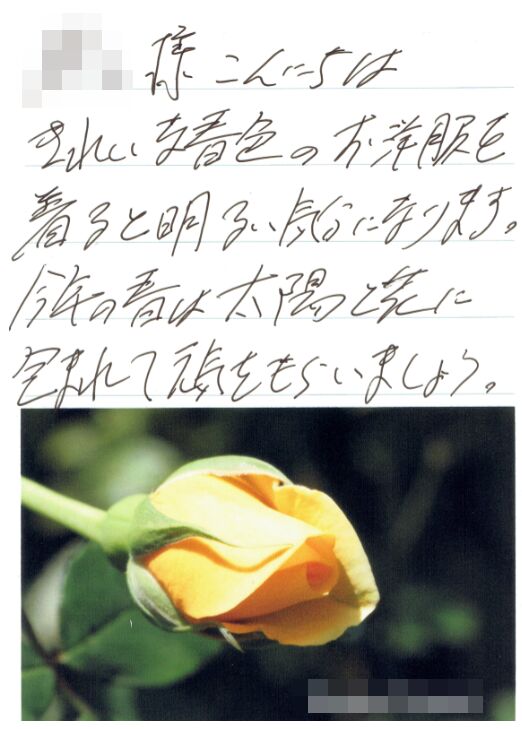 様 こんにちは
きれいな春色のお洋服を
着ると明るい気分になります。
今年の春は太陽と花に
包まれて元気をもらいましょう。